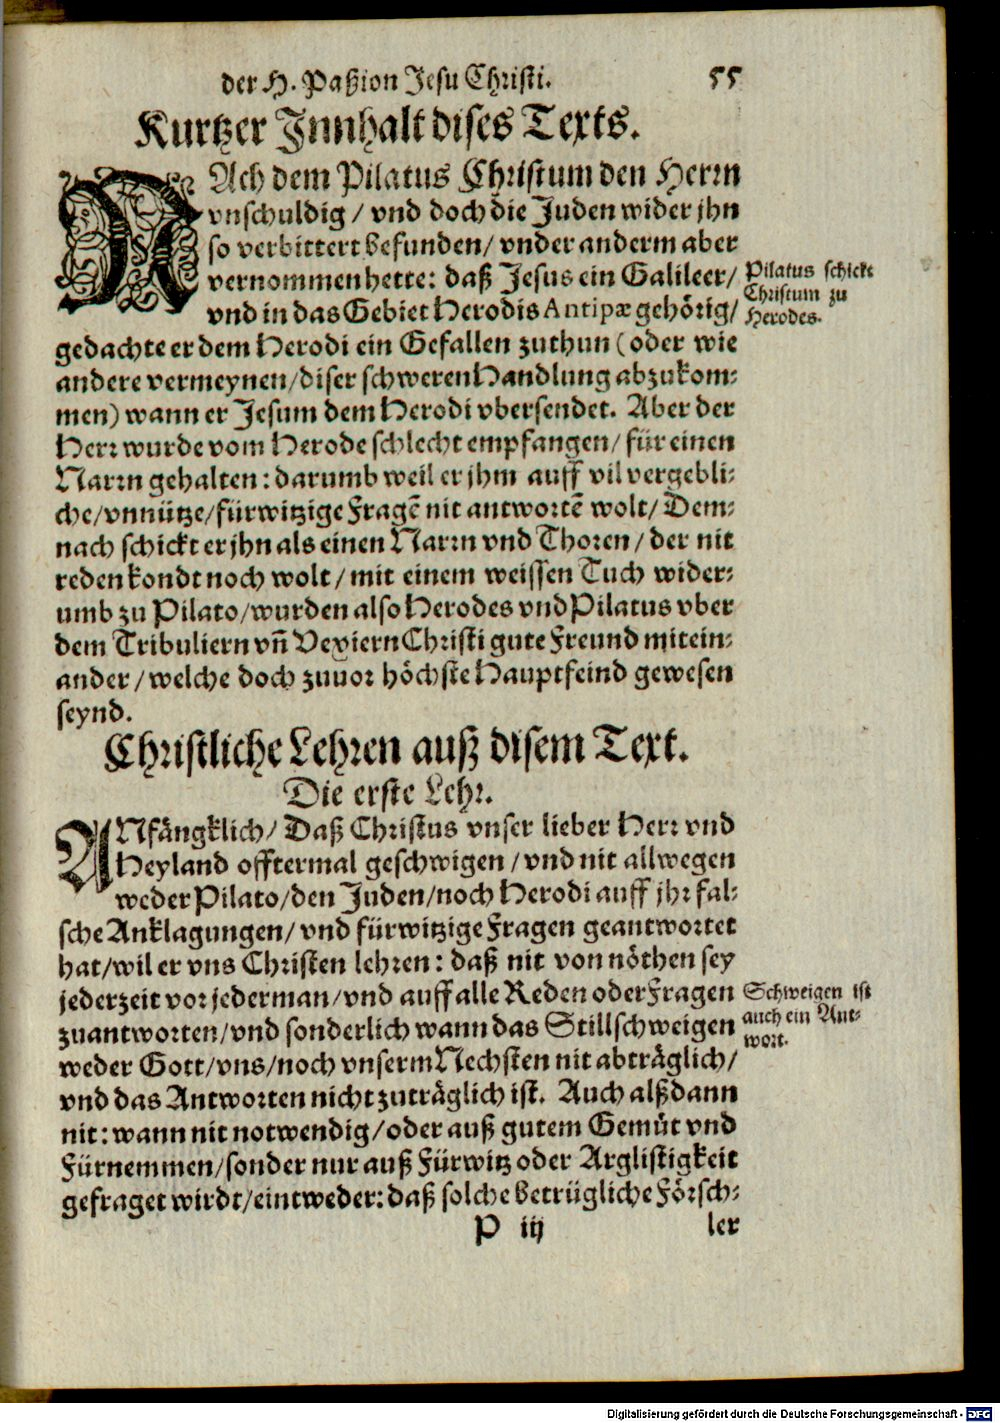 der H. Paßion Jesu Christi. 55
Kurtzer Innhalt dises Texts.
NAch dem Pilatus Christum den Herrn
vnschuldig / vnd doch die Juden wider jhn
so verbittert befunden / vnder anderm aber
vernommen hette: daß Jesus ein Galileer /
vnd in das Gebiet Herodis Antipæ gehörig /
Pilatus schickt
Christum zu
Herodes.
gedachte er dem Herodi ein Gefallen zuthun (oder wie
andere vermeynen / diser schweren Handlung abzukom-
men) wann er Jesum dem Herodi vbersendet. Aber der
Herr wurde vom Herode schlecht empfangen / für einen
Narrn gehalten: darumb weil er jhm auff vil vergebli-
che / vnnütze / fürwitzige Fragẽ nit antwortẽ wolt / Dem-
nach schickt er jhn als einen Narrn vnd Thoren / der nit
reden kondt noch wolt / mit einem weissen Tuch wider-
umb zu Pilato / wurden also Herodes vnd Pilatus vber
dem Tribuliern vñ Vexiern Christi gute Freund mitein-
ander / welche doch zuuor höchste Hauptfeind gewesen
seynd.
Christliche Lehren auß disem Text.
Die erste Lehr.
ANfängklich / Daß Christus vnser lieber Herr vnd
Heyland offtermal geschwigen / vnd nit allwegen
weder Pilato / den Juden / noch Herodi auff jhr fal-
sche Anklagungen / vnd fürwitzige Fragen geantwortet
hat / wil er vns Christen lehren: daß nit von nöthen sey
jederzeit vor jederman / vnd auff alle Reden oder Fragen
zuantworten / vnd sonderlich wann das Stillschweigen
Schweigen ist
auch ein Ant-
wort.
weder Gott / vns / noch vnserm Nechsten nit abträglich /
vnd das Antworten nicht zuträglich ist. Auch alßdann
nit: wann nit notwendig / oder auß gutem Gemüt vnd
Fürnemmen / sonder nur auß Fürwitz oder Arglistigkeit
gefraget wirdt / eintweder: daß solche betrügliche Försch-
P iij ler
Digitalisierung gefördert durch die Deutsche Forschungsgemeinschaft - DFG